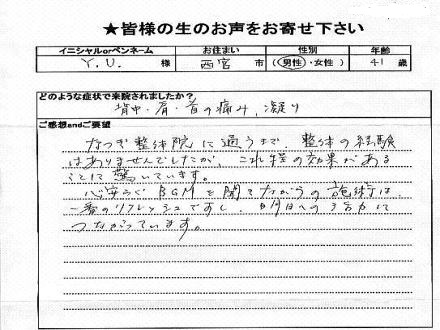 ★皆様の生のお声をお寄せ下さい
イニシャルorペンネーム お住まい 性別 年齢
Y.U. 様 西宮 市 (男性・女性) 41 歳
どのような症状で来院されましたか?
背中・肩・首の痛み、凝り
ご感想andご要望
なつぎ整体院に通うまで、整体の経験
はありませんでしたが、これ程の効果がある
ことに驚いています。
心安らぐBGMを聞きながらの施術は、
一番のリフレッシュですし、明日への活力に
つながっています。